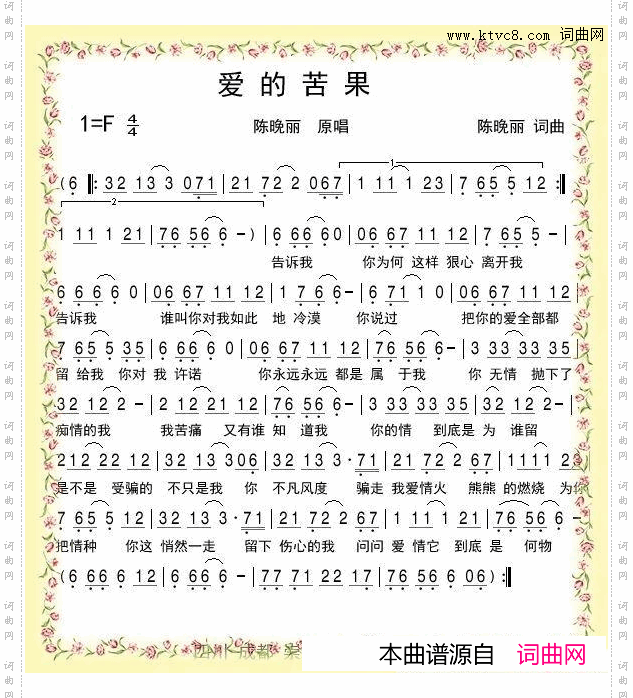 www.ktvc8.com 词曲网
爱的苦果
1=F 4/4
陈晚丽 原唱
陈晚丽 词曲
(6 ‖: 32 13 3 071 | 21 72 2 067 | 1 11 1 23 | 7 65 5 12 :‖
1 11 1 21 | 76 56 6 -) | 6 66 60 | 06 67 11 12 | 7 65 5 - |
告诉我 你为何 这样 狠心 离开我
6 66 6 0 | 06 67 11 12 | 1 76 6 - | 6 71 1 0 | 06 67 11 12 |
告诉我 谁叫你对我如此 地 冷漠 你说过 把你的爱全部都
7 65 5 35 | 6 66 6 0 | 06 67 11 12 | 76 56 6 - | 3 33 33 35 |
留 给我 你对 我 许诺 你永远永远 都是 属 于我 你 无情 抛下了
32 12 2 - | 2 12 21 12 | 76 56 6 - | 3 33 33 35 | 32 12 2 - |
痴情的我 我苦痛 又有谁 知 道我 你的情 到底是 为 谁留
212 22 12 | 32 13 306 | 32 13 3·71 | 21 72 2 67 | 111 1 23
是不是 受骗的 不只是我 你 不凡风度 骗走 我爱情火 熊熊 的燃烧 为你
7 65 5 12 | 32 13 3·71 | 21 72 2 67 | 1 11 1 21 | 76 56 6 -
把情种 你这 悄然一走 留下 伤心的我 问问 爱 情它 到底 是 何物
(6 66 6 12 | 6 66 6 - | 77 71 22 17 | 76 56 6 06) :‖
四川 成都
本曲谱源自 词曲网
词曲网